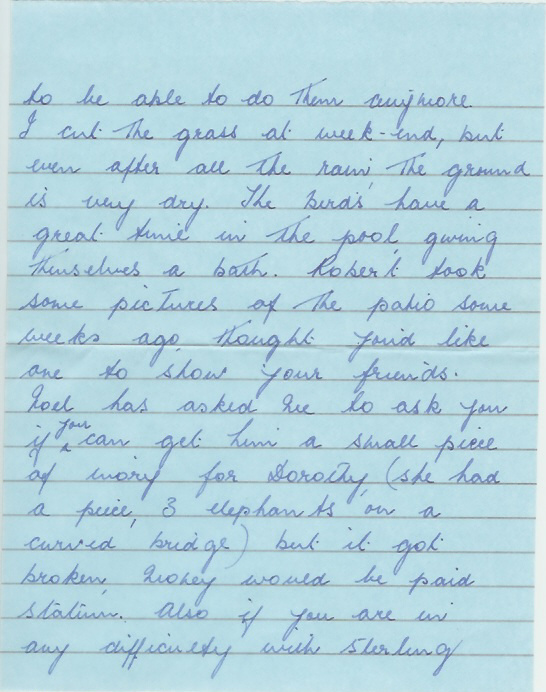 to be able to do them anymore.
I cut the grass at week-end, but
even after all the rain, the ground
is very dry. The birds have a
great time in the pool, giving
themselves a bath. Robert took
some pictures of the patio some
weeks ago, thought you'd like
one to show your friends.
Noel has asked me to ask you
if you can get him a small piece
of ivory for Dorothy, (she had
a piece, 3 elephants on a
curved bridge) but it got
broken, money would be paid
statim. Also if you are in
any difficulty with Sterling